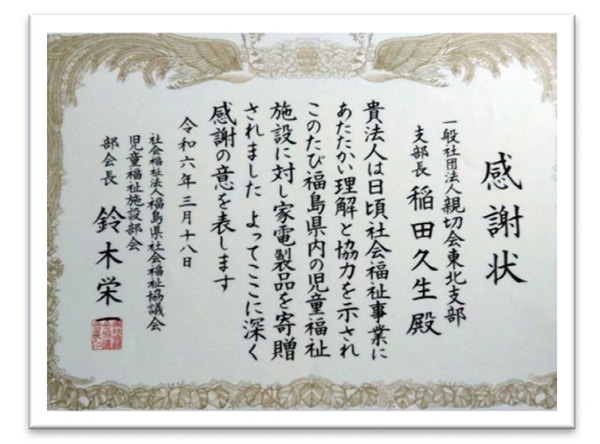 感謝状
一般社団法人親切会東北支部
支部長 稲田久生殿
貴法人は日頃社会福祉事業に
あたたかい理解と協力を示され
このたび福島県内の児童福祉
施設に対し家電製品を寄贈
されました よってここに深く
感謝の意を表します
令和六年三月十八日
社会福祉法人福島県社会福祉協議会
児童福祉施設部会
部会長 鈴木栄一